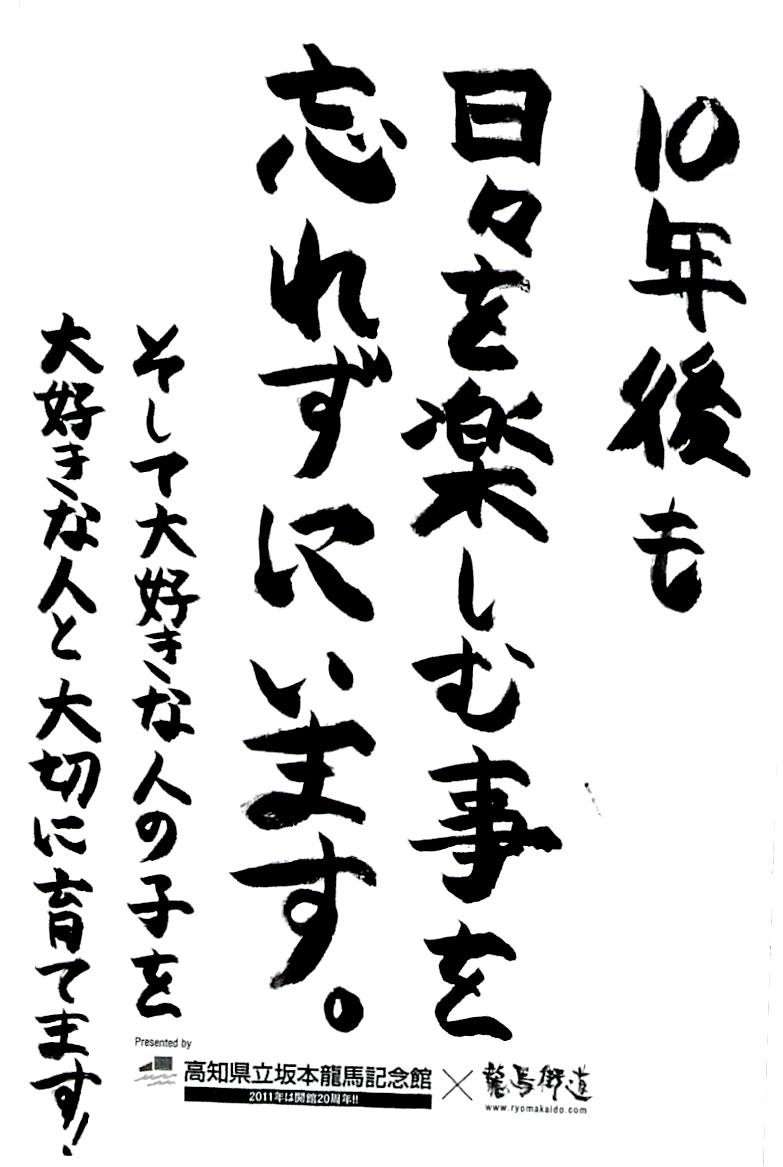 10年後も
日々を楽しむ事を
忘れずにいます。
そして大好きな人の子を
大好きな人と大切に育てます！
Presented by
高知県立坂本龍馬記念館×龍馬街道
2011年は開館20周年!!
www.ryomakaido.com